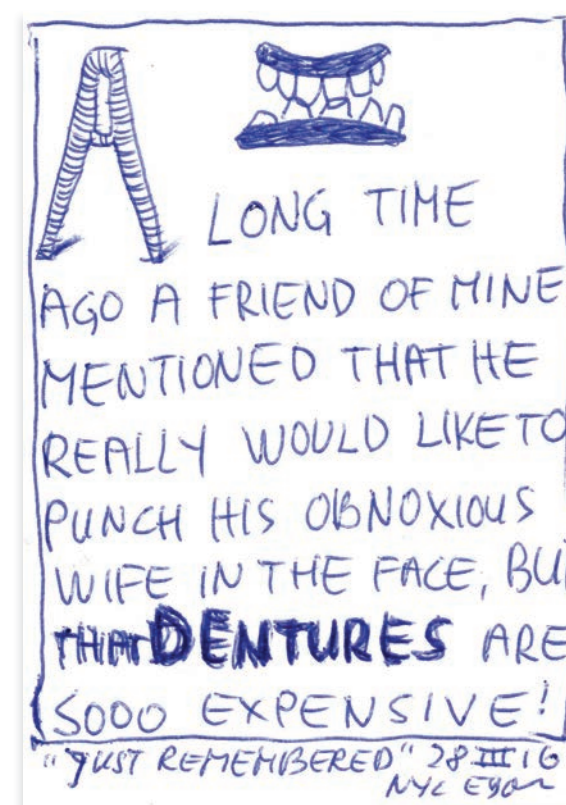 A LONG TIME
AGO A FRIEND OF MINE
MENTIONED THAT HE
REALLY WOULD LIKE TO
PUNCH HIS OBNOXIOUS
WIFE IN THE FACE, BU
THAT DENTURES ARE
SOOO EXPENSIVE!
"JUST REMEMBERED" 28 III 16
NYC EGON